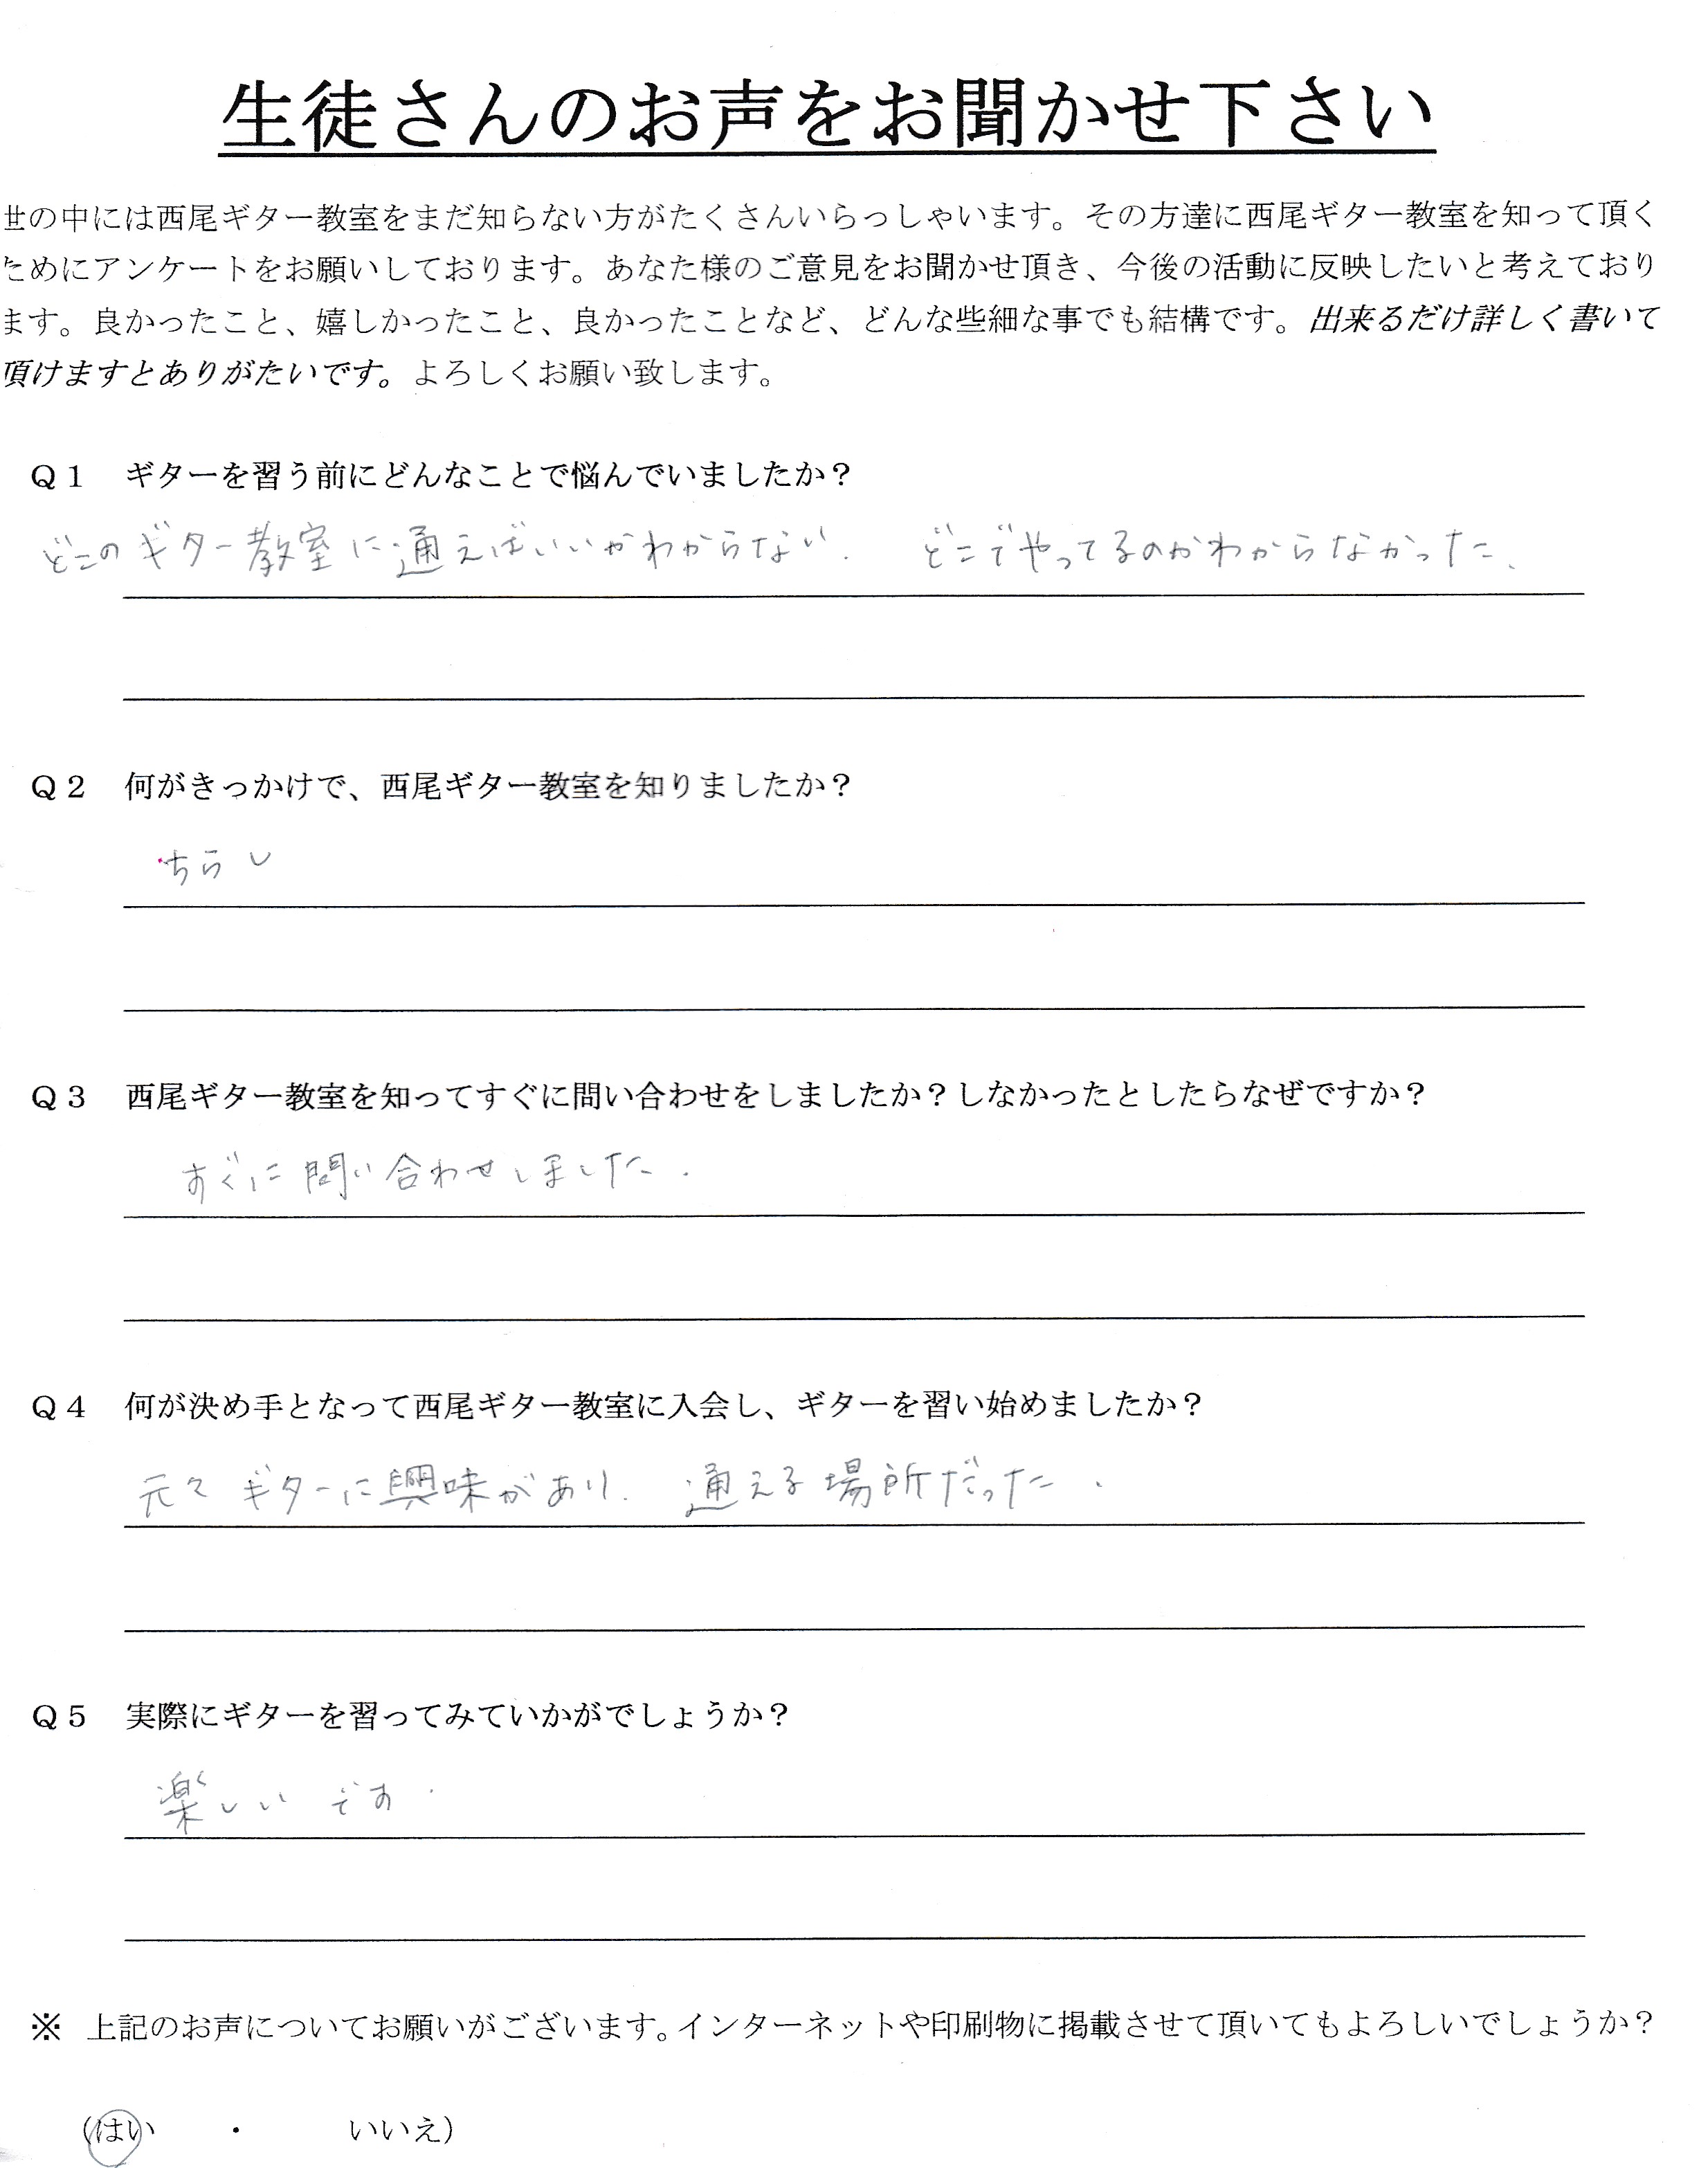 生徒さんのお声をお聞かせ下さい
世の中には西尾ギター教室をまだ知らない方がたくさんいらっしゃいます。その方達に西尾ギター教室を知って頂く
ためにアンケートをお願いしております。あなた様のご意見をお聞かせ頂き、今後の活動に反映したいと考えており
ます。良かったこと、嬉しかったこと、良かったことなど、どんな些細な事でも結構です。出来るだけ詳しく書いて
頂けますとありがたいです。よろしくお願い致します。
Q1 ギターを習う前にどんなことで悩んでいましたか？
どこのギター教室に通えばいいかわからない. どこでやってるのかわからなかった、
Q2 何がきっかけで、西尾ギター教室を知りましたか？
ちらし
Q3 西尾ギター教室を知ってすぐに問い合わせをしましたか？しなかったとしたらなぜですか？
すぐに問い合わせしました.
Q4 何が決め手となって西尾ギター教室に入会し、ギターを習い始めましたか？
元々ギターに興味があり. 通える場所だった.
Q5 実際にギターを習ってみていかがでしょうか？
楽しいです.
※ 上記のお声についてお願いがございます。インターネットや印刷物に掲載させて頂いてもよろしいでしょうか？
（はい ・ いいえ）